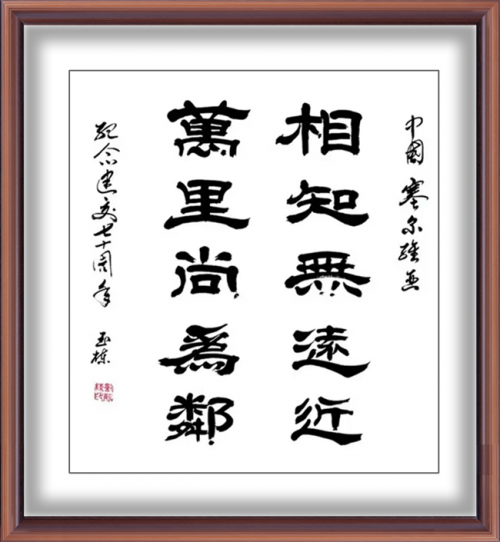 中國塞尔維亚
相知無遠近
萬里尚為鄰
紀念建交七十周年
玉棟